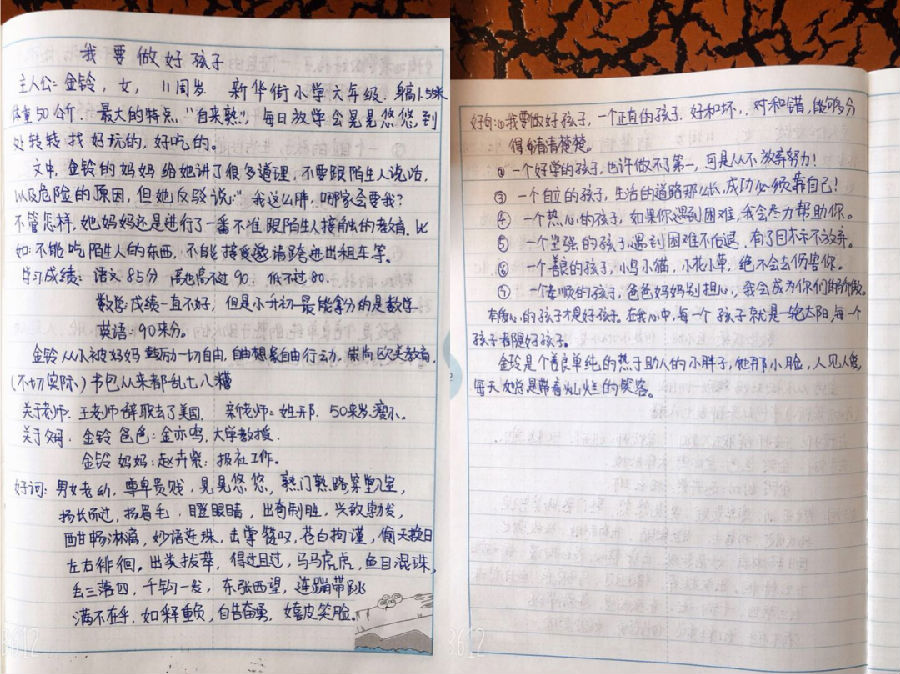 我要做好孩子
主人公:金铃,女,11周岁 新华街小学六年级.身高1.5米
体重50公斤.最大的特点"自来熟",每日放学会晃晃悠悠到
处转转找好玩的,好吃的。
文中,金铃的妈妈给她讲了很多道理,不要跟陌生人说话,
以及危险的原因,但她反驳说:"我这么胖,哪家会要我?
不管怎样,她妈妈还是进行了一番不准跟陌生人接触的教育,比
如:不能吃陌生人的东西,不能接受邀请跨进出租车等。
学习成绩:语文85分 高不过90,低不过80.
数学:成绩一直不好,但是小升初最能拿分的是数学
英语:90来分。
金铃从小被好妈 鼓励一切自由,自由想象自由行动,崇尚欧美教育,
(不切实际)书包从来都乱七八糟
关于老师:王老师辞职去了美国. 新老师:姓邢.50来岁,瘦小.
关于父母:金铃爸爸:金亦鸣,大学教授.
金铃妈妈:赵卉紫:报社工作。
好词:男女老幼,尊卑贵贱,晃晃悠悠,熟门熟路,
扬长而过,扬眉毛,瞪眼睛,出奇制胜,兴致勃发,
酣畅淋漓,妙语连珠,击掌赞叹,苍白拘谨,偷天换日
左右徘徊,出类拔萃,得过且过,马马虎虎,鱼目混珠,
丢三落四,千钧一发,东张西望,连蹦带跳
满不在乎,如释重负,自告奋勇,嬉皮笑脸。
好句:①我要做好孩子,一个正直的孩子,好和坏,对和错,能够分
得清清楚楚。
② 一个好学的孩子,也许做不了第一,可是从不放弃努力!
③ 一个自立的孩子,生活的道路那么长,成功必须靠自己!
④ 一个热心的孩子,如果你遇到困难,我会尽力帮助你。
⑤ 一个坚强的孩子,遇到困难不后退,有了目标不放弃。
⑥ 一个善良的孩子,小鸟小猫,小花小草,绝不会去伤害你。
⑦ 一个孝顺的孩子,爸爸妈妈别担心,我会成为你们的骄傲。
有信心的孩子才是好孩子。在我心中,每一个孩子就是一轮太阳,每一个
孩子都是好孩子。
金铃是个善良单纯的热于助人的小胖子,她那小脸,人见人爱,
每天好像是带着灿烂的笑容。
3612
3612